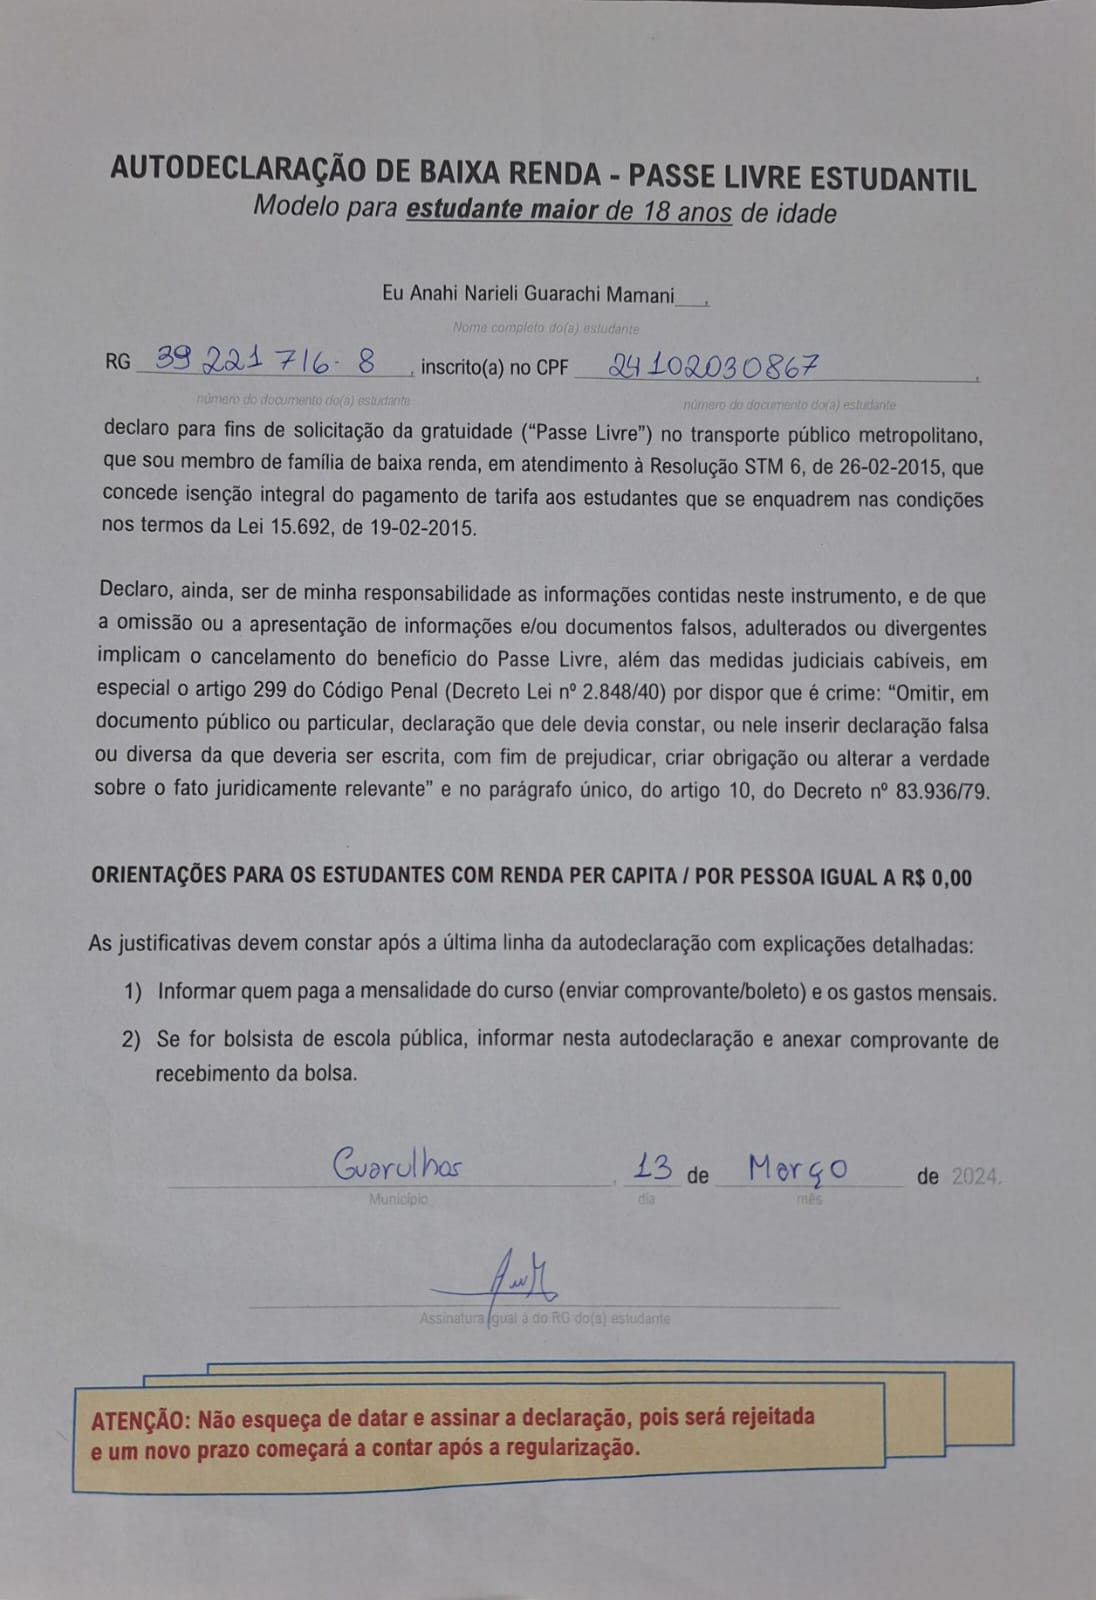 AUTODECLARAÇÃO DE BAIXA RENDA - PASSE LIVRE ESTUDANTIL
Modelo para estudante maior de 18 anos de idade
Eu Anahi Narieli Guarachi Mamani___,
Nome completo do(a) estudante
RG 39 221 716-8, inscrito(a) no CPF 24102030867,
número do documento do(a) estudante número do documento do(a) estudante
declaro para fins de solicitação da gratuidade (“Passe Livre”) no transporte público metropolitano,
que sou membro de família de baixa renda, em atendimento à Resolução STM 6, de 26-02-2015, que
concede isenção integral do pagamento de tarifa aos estudantes que se enquadrem nas condições
nos termos da Lei 15.692, de 19-02-2015.
Declaro, ainda, ser de minha responsabilidade as informações contidas neste instrumento, e de que
a omissão ou a apresentação de informações e/ou documentos falsos, adulterados ou divergentes
implicam o cancelamento do benefício do Passe Livre, além das medidas judiciais cabíveis, em
especial o artigo 299 do Código Penal (Decreto Lei nº 2.848/40) por dispor que é crime: “Omitir, em
documento público ou particular, declaração que dele devia constar, ou nele inserir declaração falsa
ou diversa da que deveria ser escrita, com fim de prejudicar, criar obrigação ou alterar a verdade
sobre o fato juridicamente relevante” e no parágrafo único, do artigo 10, do Decreto nº 83.936/79.
ORIENTAÇÕES PARA OS ESTUDANTES COM RENDA PER CAPITA / POR PESSOA IGUAL A R$ 0,00
As justificativas devem constar após a última linha da autodeclaração com explicações detalhadas:
1) Informar quem paga a mensalidade do curso (enviar comprovante/boleto) e os gastos mensais.
2) Se for bolsista de escola pública, informar nesta autodeclaração e anexar comprovante de
recebimento da bolsa.
Guarulhos, 13 de Março de 2024.
Município dia mês
Assinatura igual à do RG do(a) estudante
ATENÇÃO: Não esqueça de datar e assinar a declaração, pois será rejeitada
e um novo prazo começará a contar após a regularização.